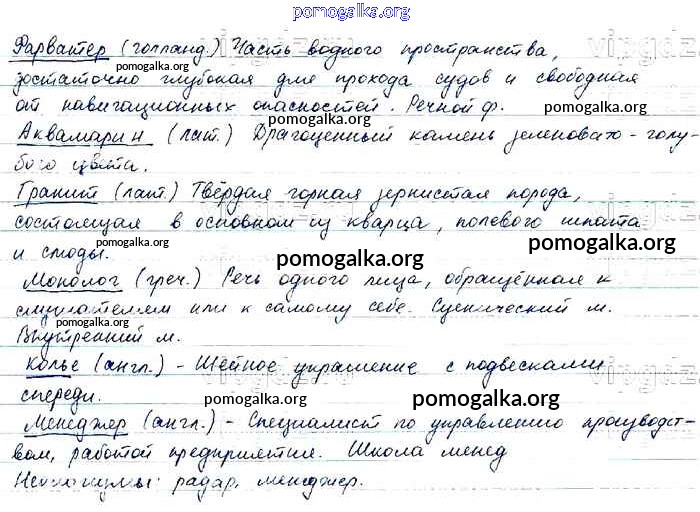 pomogalka.org
Фарватер (голланд.) Часть водного пространства,
достаточно глубокая для прохода судов и свободная
от навигационных опасностей. Речной ф.
Аквамарин (лат.) Драгоценный камень зеленовато-голу-
бого цвета.
Гранит (лат.) Твёрдая горная зернистая порода,
состоящая в основном из кварца, полевого шпата
и слюды.
Монолог (греч.) Речь одного лица, обращённая к
слушателям или к самому себе. Сценический м.
Внутренний м.
Колье (англ.) - Шейное украшение с подвесками
спереди.
Менеджер (англ.) - Специалист по управлению производст-
вом, работой предприятие. Школа менед
Неологизмы: радар, менеджер.
pomogalka.org
pomogalka.org
pomogalka.org
pomogalka.org
pomogalka.org
pomogalka.org
pomogalka.org
pomogalka.org
pomogalka.org
pomogalka.org